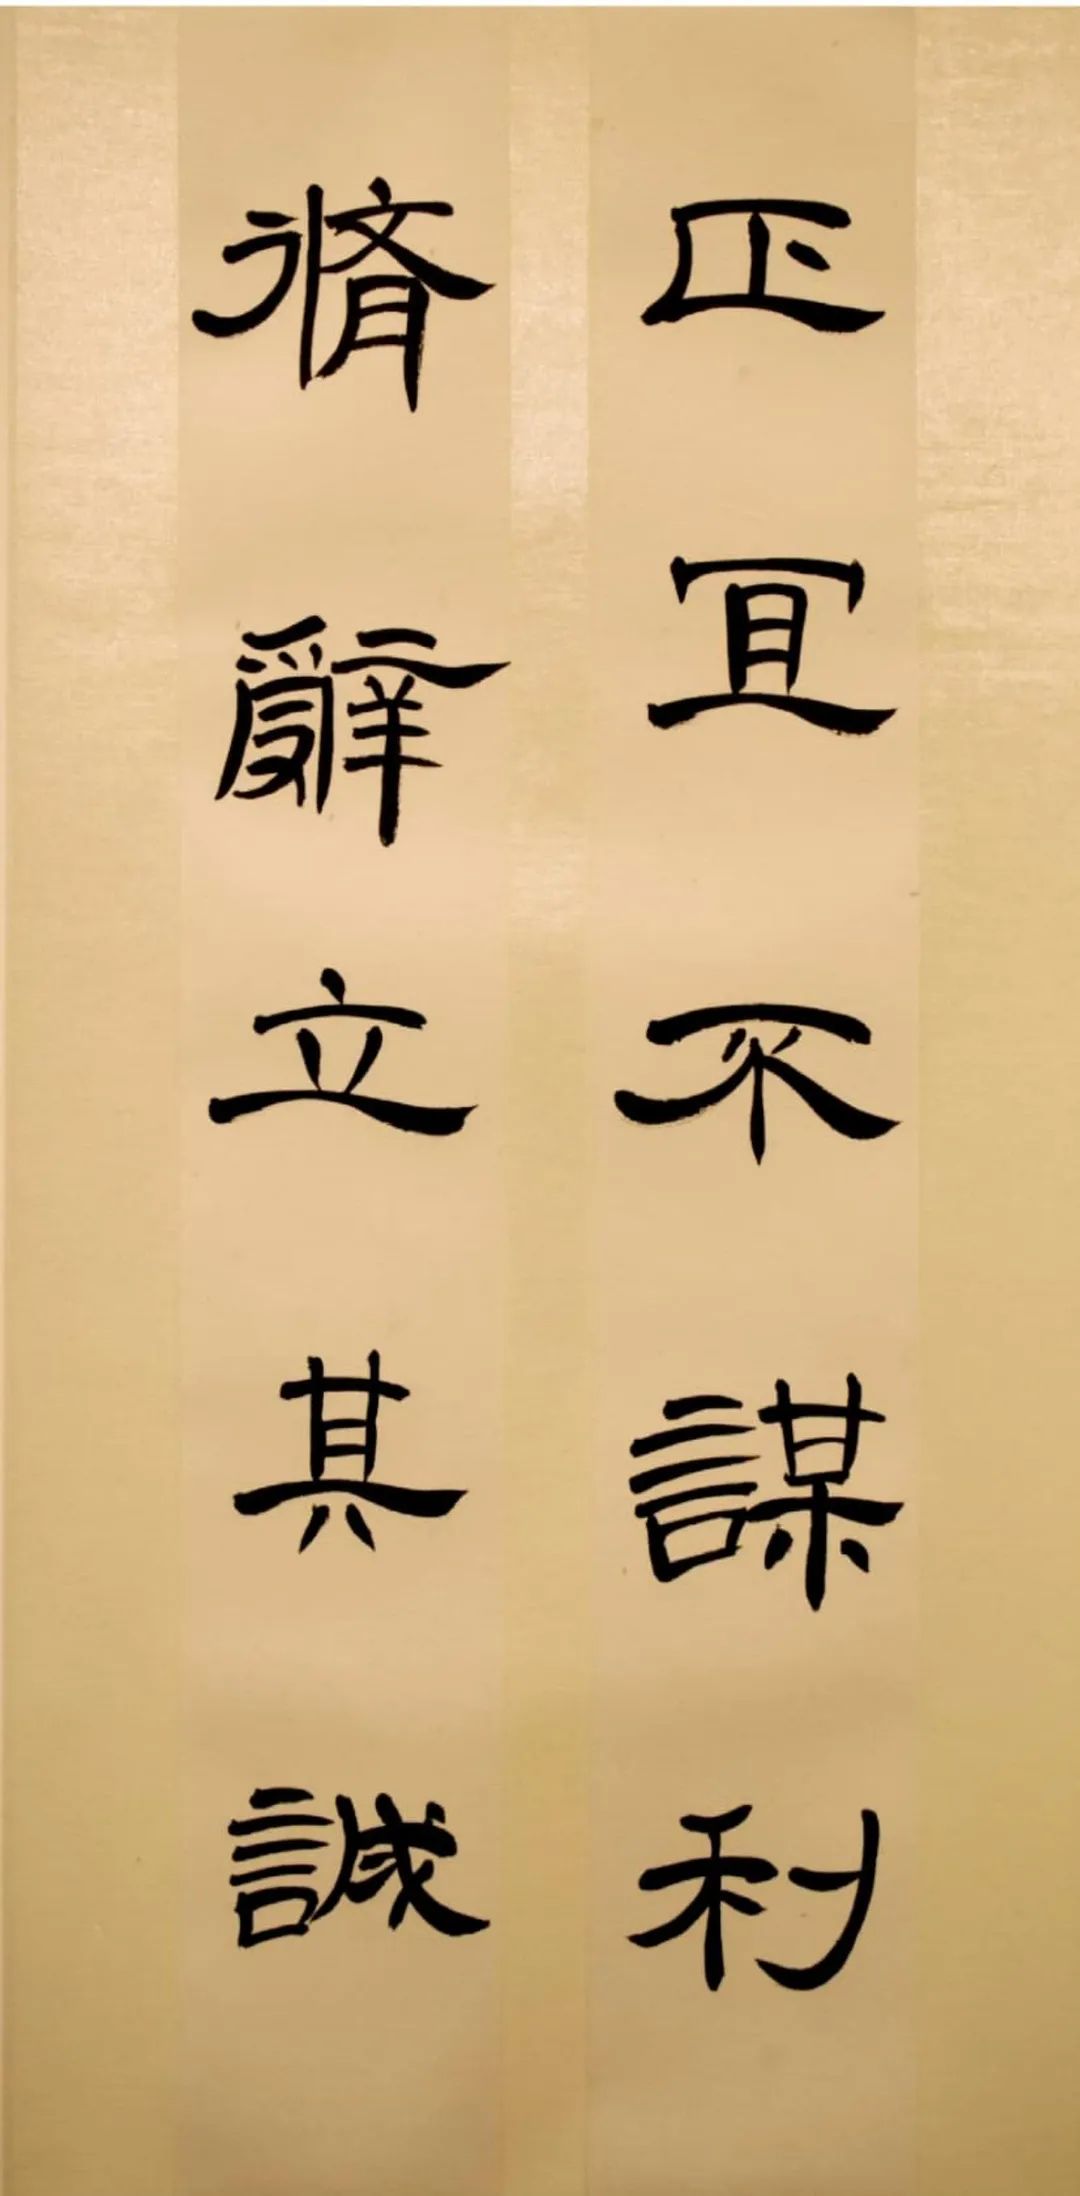 正宜不謀利
脩辭立其誠